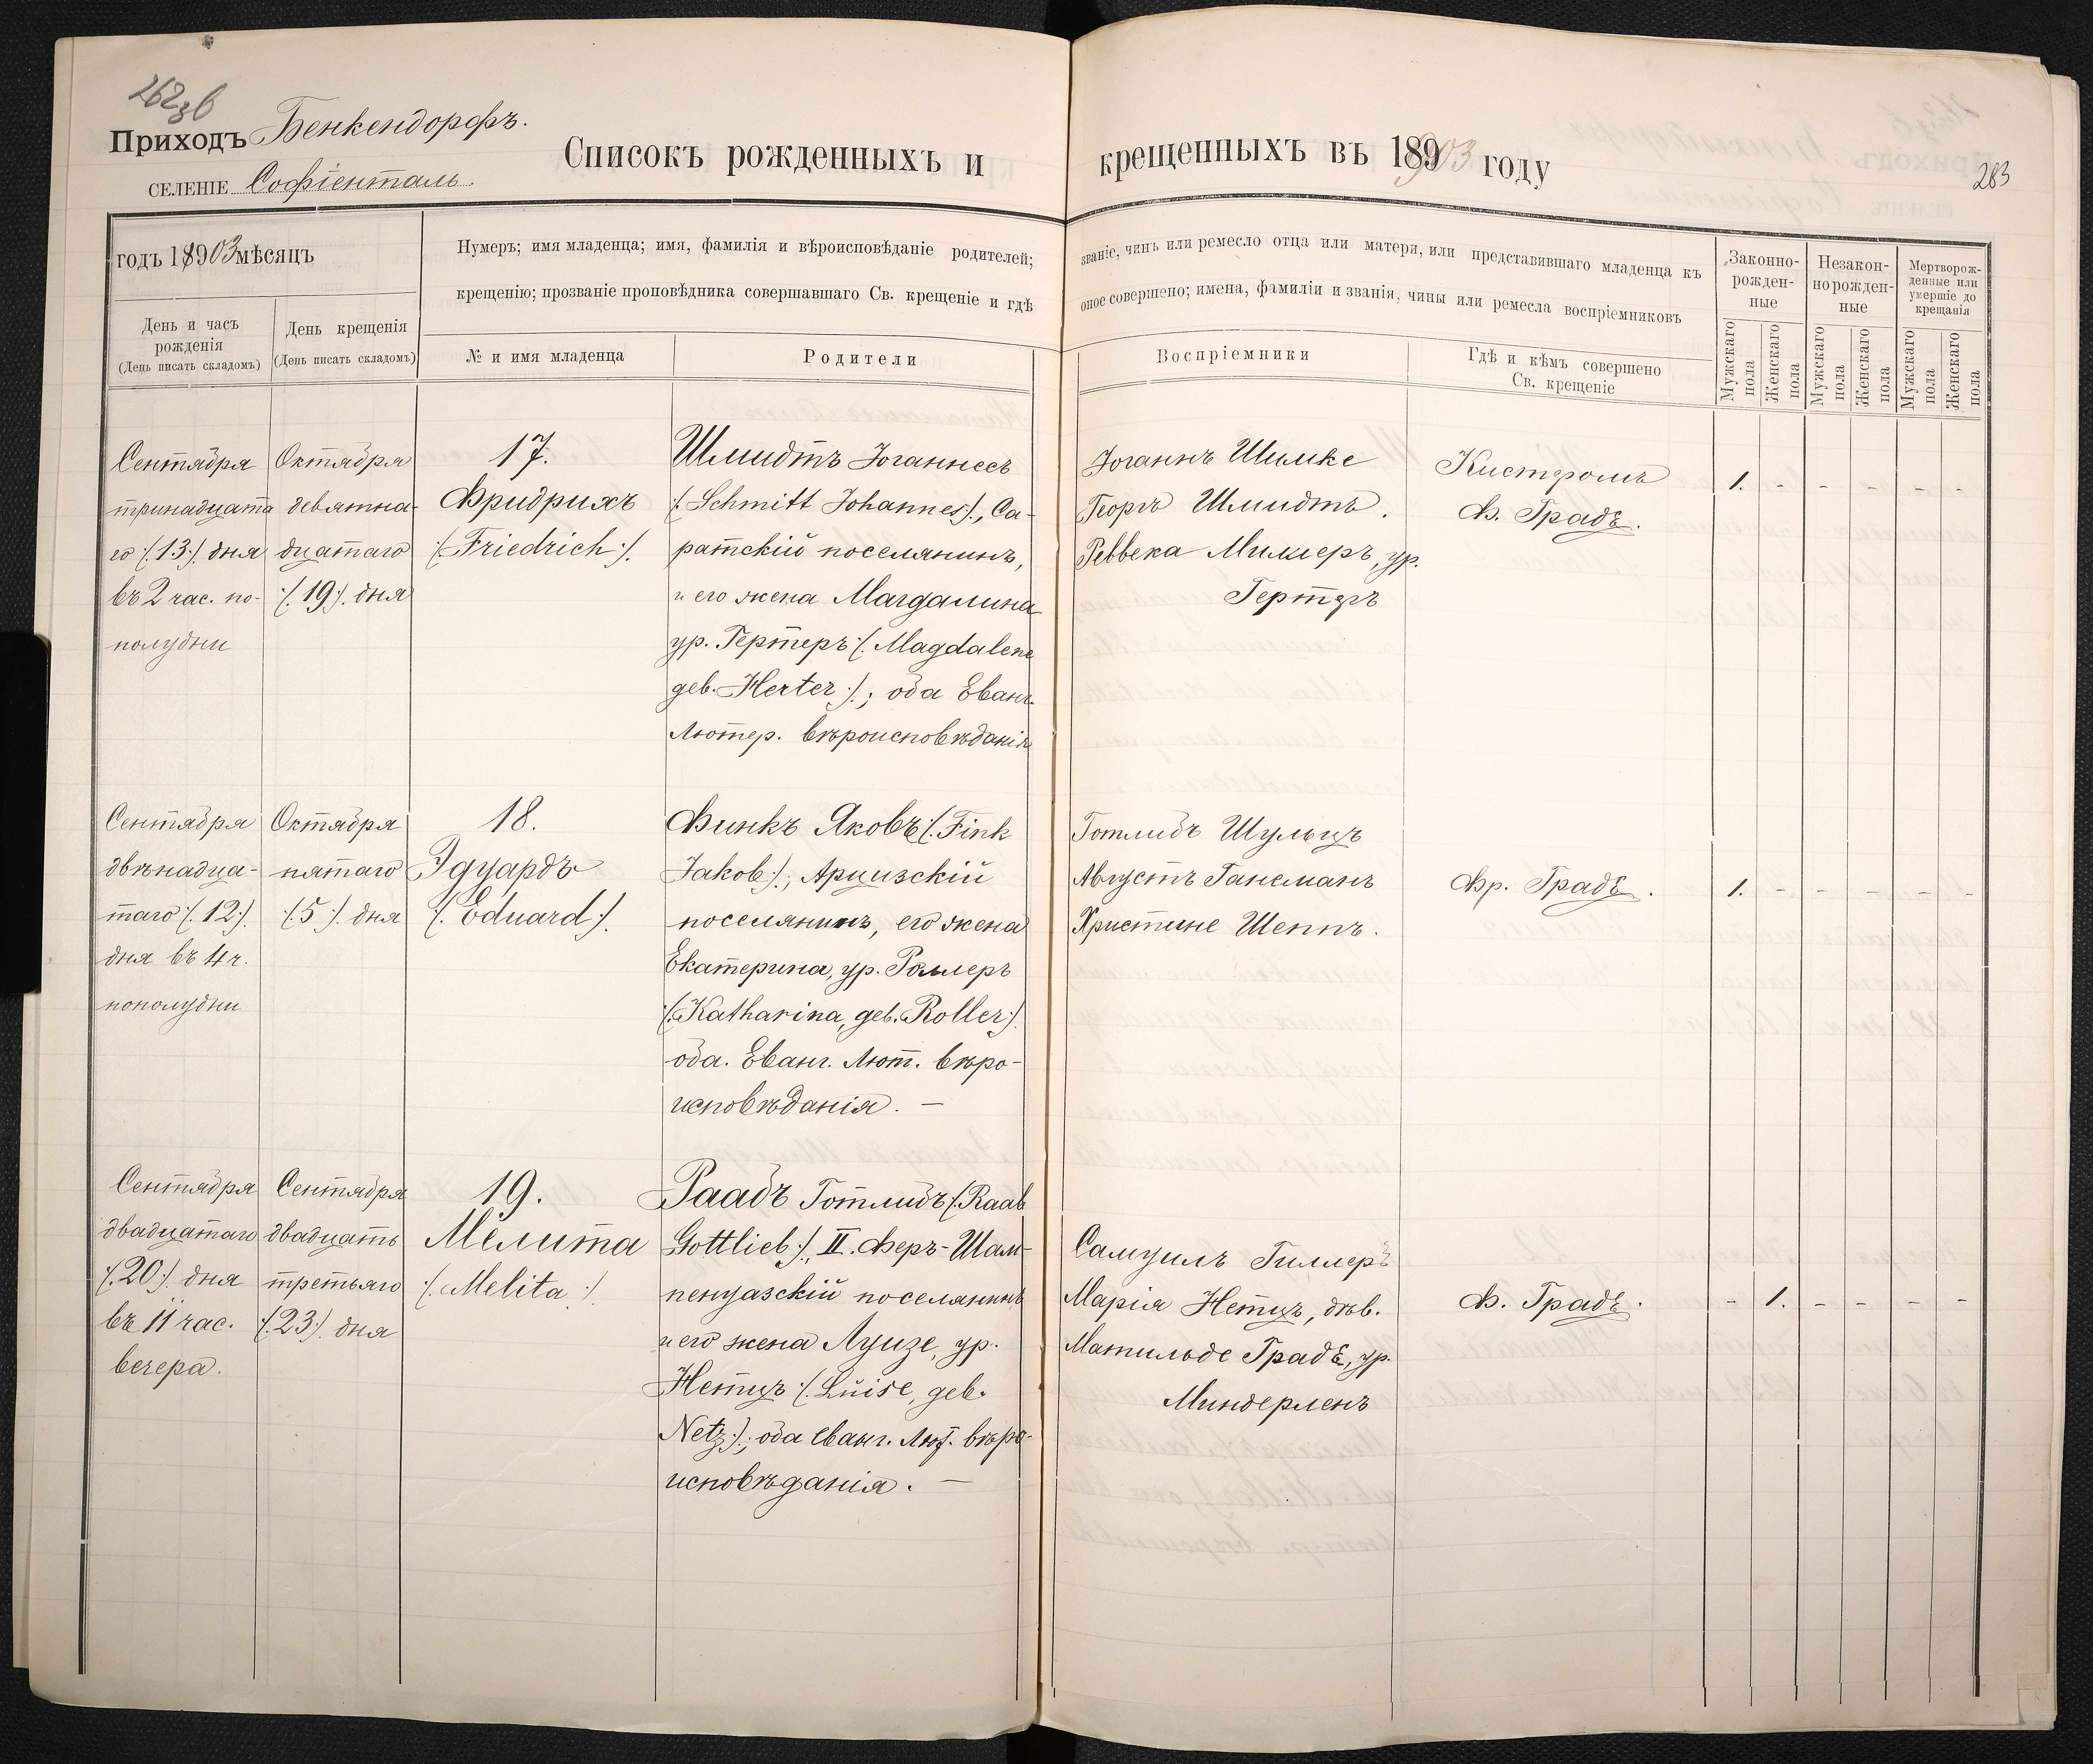 262 зв
Приходъ Бенкендорфъ.
селеніе Софіенталь.
Списокъ рожденныхъ и крещенныхъ въ 18903 году
283
годъ 18903 мѣсяцъ
Нумеръ; имя младенца; имя, фамилія и вѣроисповѣданіе родителей; званіе, чинъ или ремесло отца или матери, или представившаго младенца къ
крещенію; прозваніе проповѣдника совершавшаго Св. крещеніе и гдѣ оное совершено; имена, фамиліи и званія, чины или ремесла воспріемниковъ
День и часъ
рожденія
(День писать складомъ)
День крещенія
(День писать складомъ)
№ и имя младенца
Родители
Воспріемники
Гдѣ и кѣмъ совершено
Св. крещеніе
Законно-
рожден-
ные
Незакон-
норожден-
ные
Мертворож-
денные или
умершіе до
крещанія
Мужскаго
пола
Женскаго
пола
Мужскаго
пола
Женскаго
пола
Мужскаго
пола
Женскаго
пола
Сентября
тринадцата
го /:13:/ дня
въ 2 час. по-
полудни
Октября
девятна-
дцатаго
/:19:/ дня
17.
Фридрихъ
/:Friedrich:/.
Шмидтъ Іоганнесъ
/:Schmitt Johannes:/, Са-
ратскій поселянинъ,
и его жена Магдалина
ур. Гертеръ /:Magdalene
geb. Herter:/; оба Еванг.
Лютер. вѣроисповѣданія
Іоганнъ Шимке
Георгъ Шмидтъ.
Реввека Миллеръ, ур.
Гертеръ
Кистеромъ
Ф. Градъ.
1. - - - - -
Сентября
двѣнадца-
таго /:12:/.
дня въ 4 ч.
пополудни
Октября
пятаго
/:5:/. дня
18.
Эдуардъ
/:Eduard:/.
Финкъ Яковъ /:Fink
Jakob:/, Арцизскій
поселянинъ, его жена
Екатерина, ур. Роллеръ
/:Katharina, geb. Roller:/.
оба. Еванг. Лют. вѣро-
исповѣданія. —
Готлибъ Шульцъ
Августъ Гансманъ
Христине Шеппъ.
Фр. Градъ.
1. - - - - -
Сентября
двадцатаго
/:20:/. дня
въ 11 час.
вечера.
Сентября
двадцать
третьяго
/:23:/. дня
19.
Мелита
/:Melita:/.
Раабъ Готлибъ /:Raab
Gottlieb:/, II. Феръ-Шам-
пенуазскій поселянинъ
и его жена Луизе, ур.
Нетцъ /:Luise, geb.
Netz:/; оба еванг. Лют. вѣро-
исповѣданія. —
Самуилъ Гиллеръ
Марія Нетцъ, дѣв.
Матильде Градъ, ур.
Миндерленъ
Ф. Градъ.
- 1. - - - -